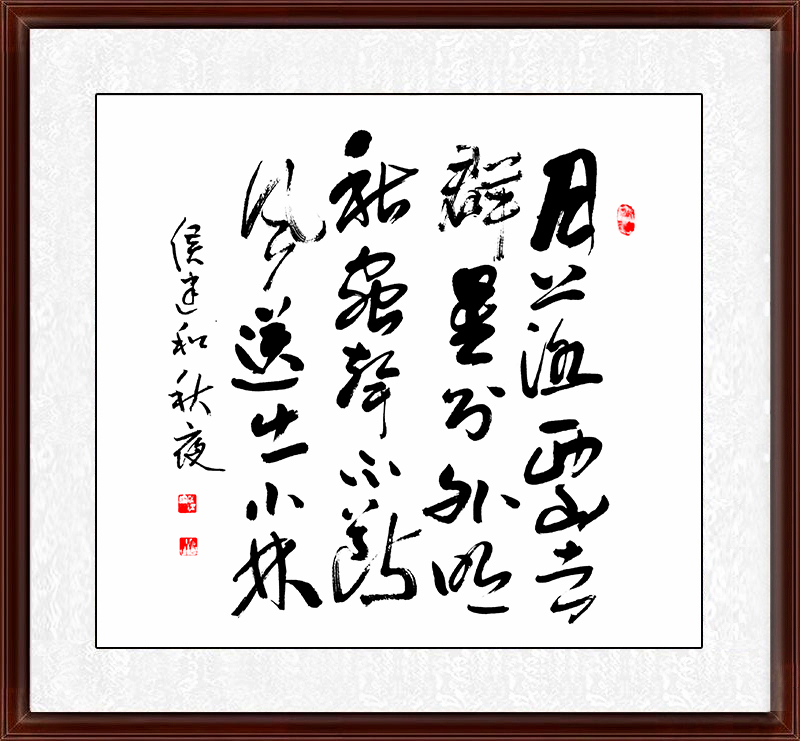 月落西山去
群星分外明
秋蟲聲不斷
風送出小林
侯建和秋夜